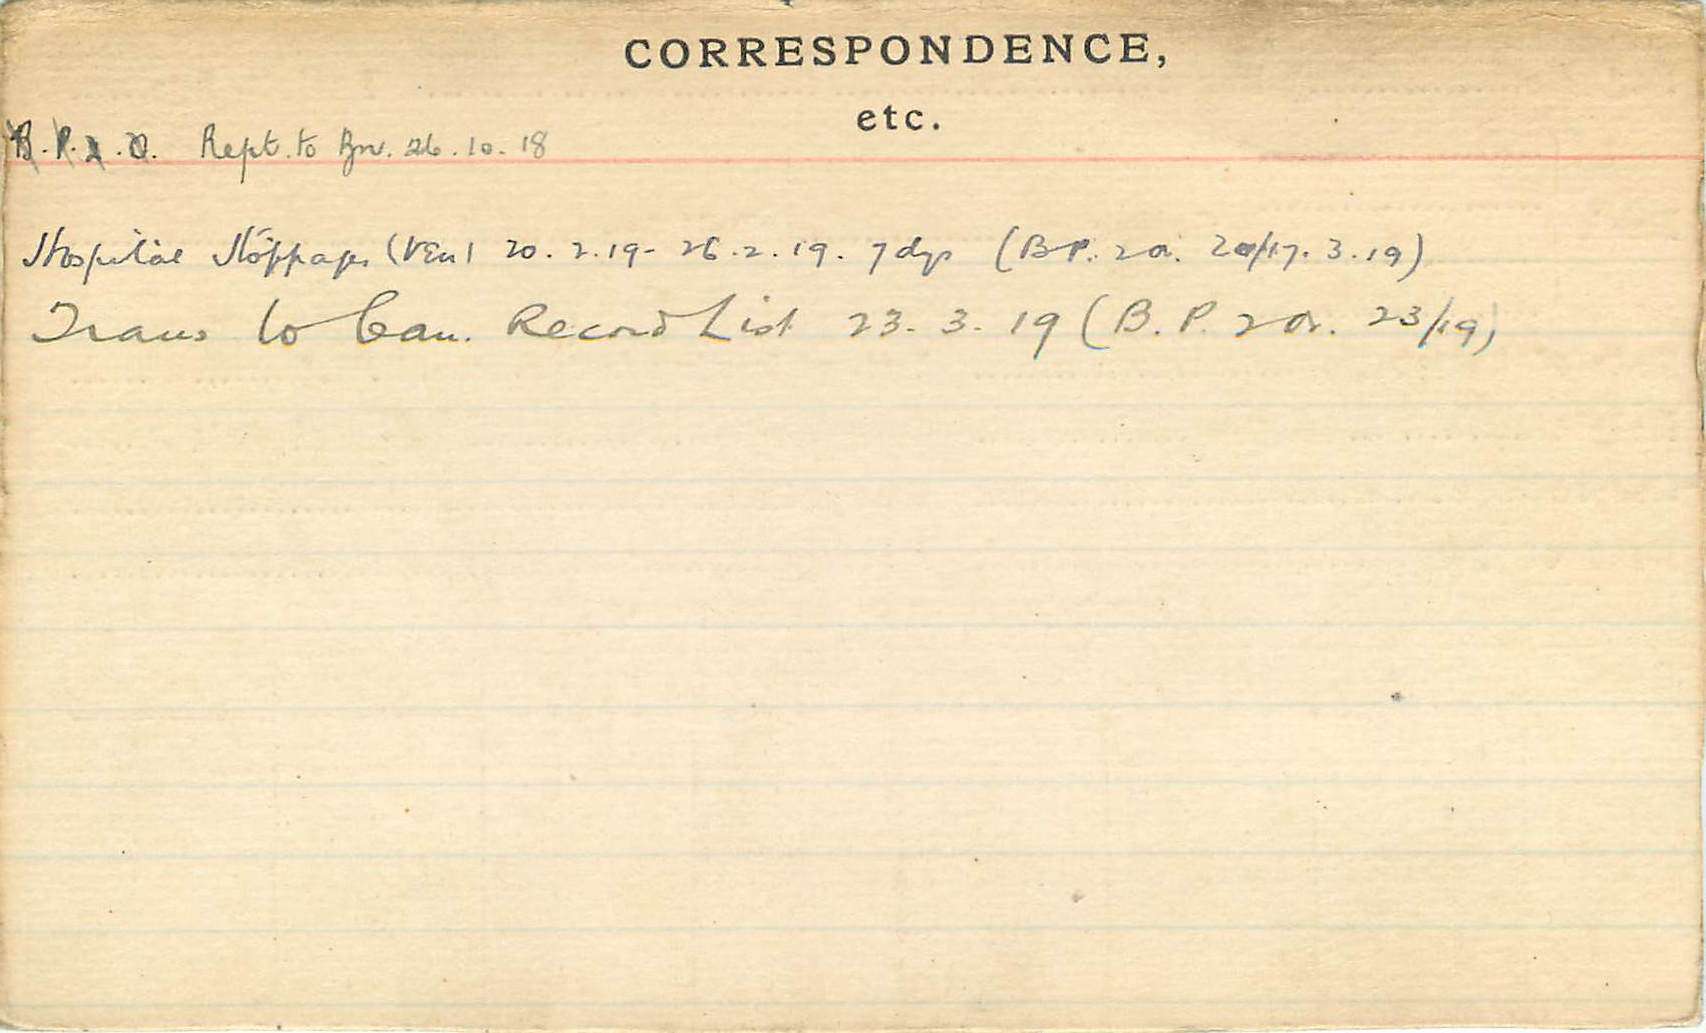 CORRESPONDENCE,
etc.
B.P.2.O. Rept. to Bn. 26.10.18
Hospital Stoppages (Ven) 20.2.19 - 26.2.19. 7 dys (B.P. 2 Or. 20/17.3.19)
Trans to Can. Record List 23.3.19 (B.P. 2 Or. 23/19)